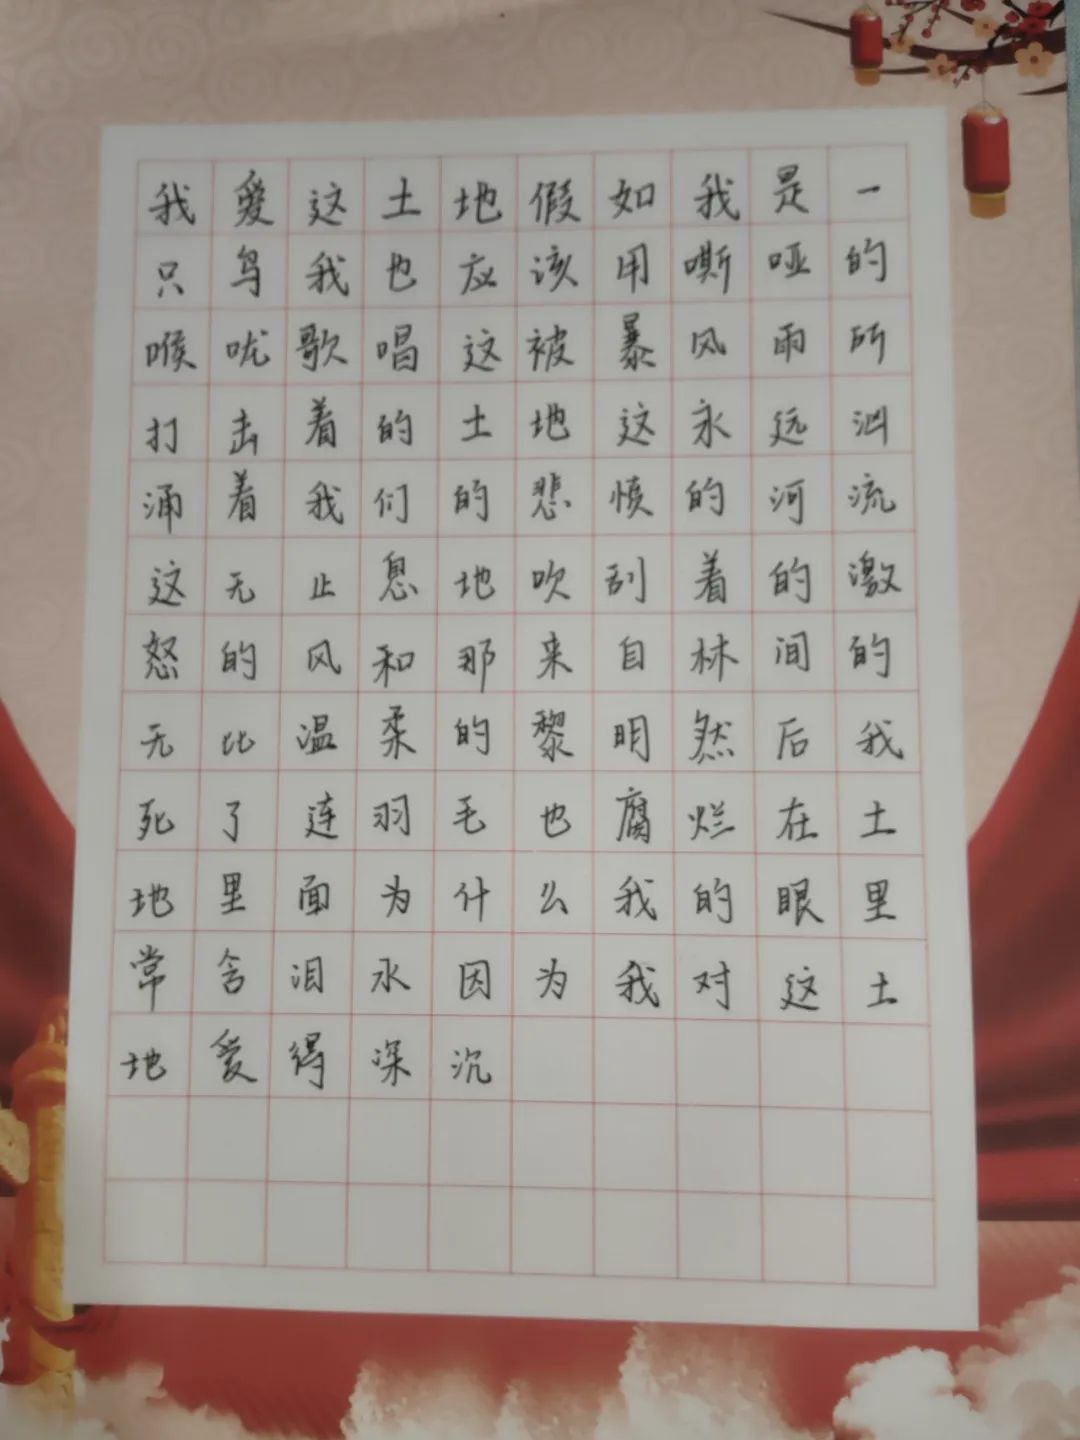 我爱这土地假如我是一
只鸟我也应该用嘶哑的
喉咙歌唱这被暴风雨所
打击着的土地这永远汹
涌着我们的悲愤的河流
这无止息地吹刮着的激
怒的风和那来自林间的
无比温柔的黎明然后我
死了连羽毛也腐烂在土
地里面为什么我的眼里
常含泪水因为我对这土
地爱得深沉